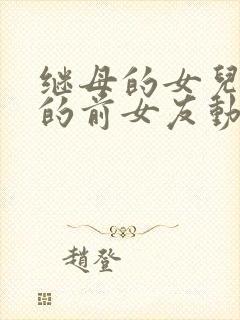 继母的女兒
的前女友動
趙登